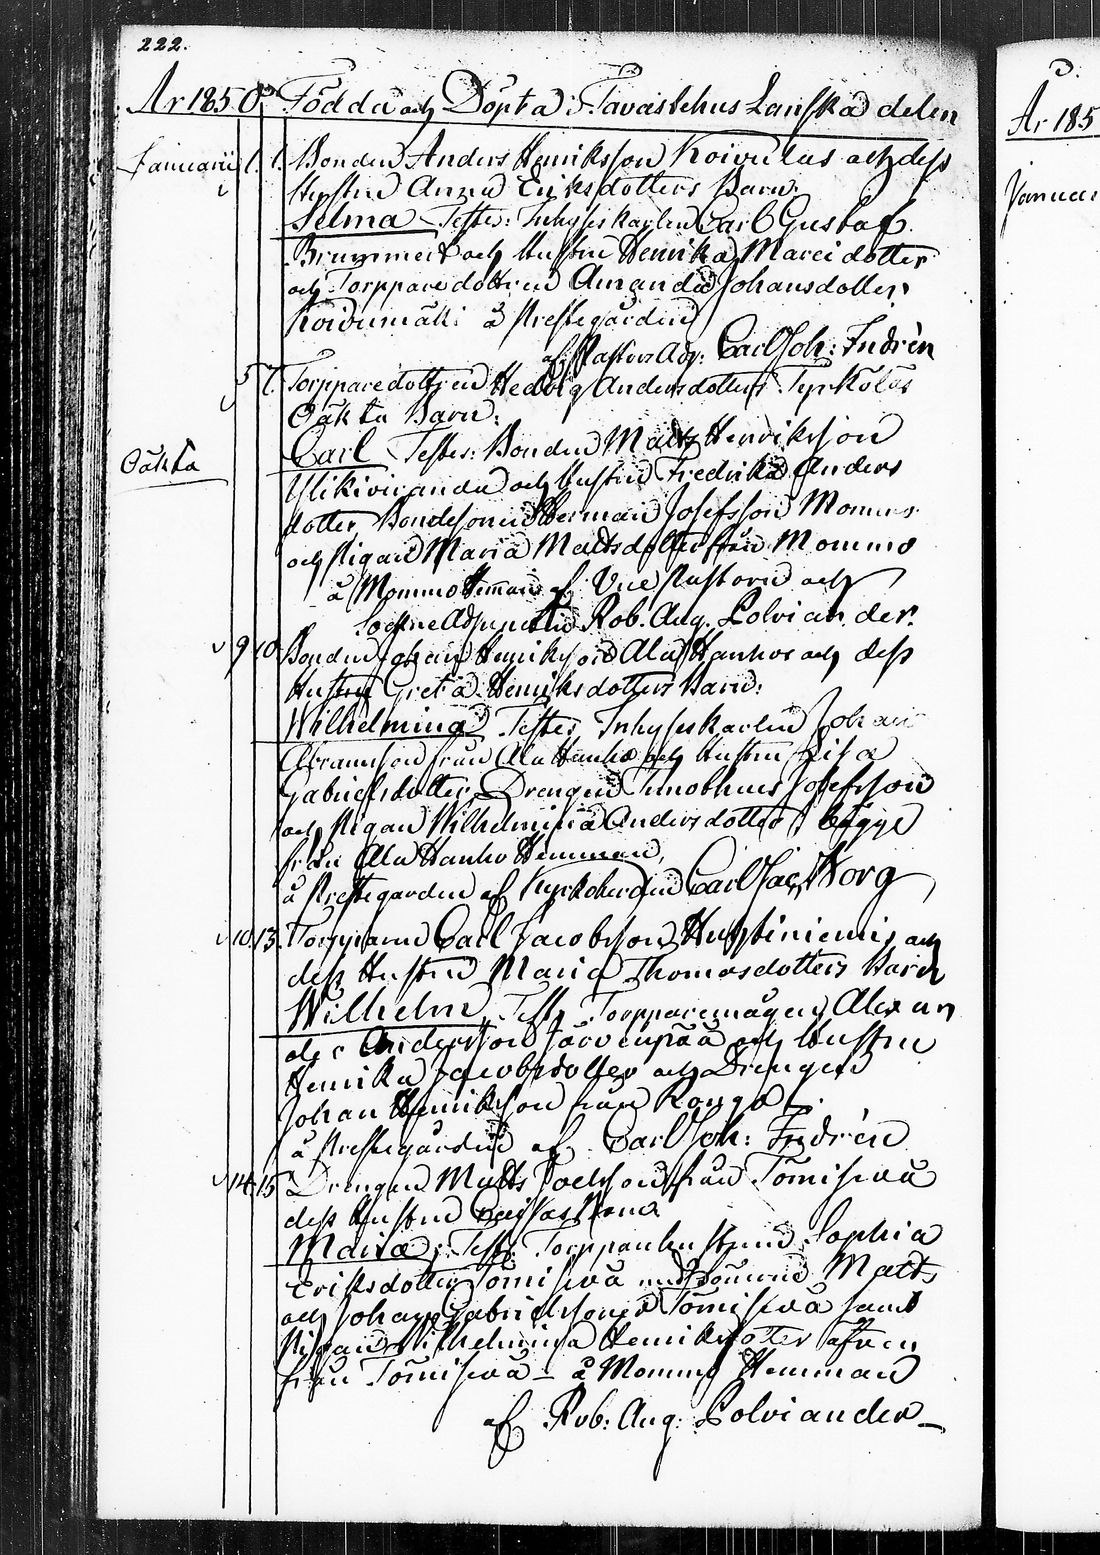 222.
År 1850. Födda och Döpta i Tavastehus Länska delen
Januarii 1. 1. Bonden Anders Henriksson Koivulas och dess
Hustru Anna Eriksdotters Barn:
Selma Testes: Inhyseskarlen Carl Gustaf
Brummert och Hustru Henrika Marcidotter
och Torpparedottren Amanda Johansdotter
Koivumäki å Prestegården
af Pastors Adj: Carl Joh: Indrèn
5 7. Torpparedottren Hedvig Andersdotters Tyrkölas
Oäkta Barn:
Oäkta
Carl Testes: Bonden Matts Henriksson
Ylikiviranda och Hustru Fredrika Anders
dotter, Bondesonen Herman Josefsson Mommo
och Pigan Maria Mattsdotter från Mommo
å Mommo Hemman af Vice Pastorn och
Sockne Adjuncten Rob. Aug. Polviander.
9 10 Bonden Johan Henriksson Ala Hankos och dess
Hustru Greta Henriksdotters Barn:
Wilhelmina Testes Inhyseskarlen Johan
Abramsson från Ala Hanko och Hustru Lisa
Gabrielsdotter, Drengen Timotheus Josefsson
och Pigan Wilhelmina Andersdotter, begge
från Ala Hanko Hemman,
å Prestegården af Kyrkoherden Carl Jac. Borg
10. 13. Torpparen Carl Jacobsson Huhtiniemis och
dess Hustru Maria Thomasdotters Barn
Wilhelm, Testes Torpparemågen Alexan
der Andersson Järvenpää och Hustru
Henrika Jacobsdotter och Drengen
Johan Henriksson från Konga
å Prestegården af Carl Joh: Indrèn
14. 15 Drengen Matts Joelsson från Tömisevä
dess Hustrus
Maria; Testes Torpparehustrun Sophia
Eriksdotter Tömisevä Matts
och Johan Gabrielssoner Tömisevä samt
Pigan Wilhelmina Henriksdotter äfven
från Tömisevä – å Mommo Hemman
af Rob: Aug: Polviander –
År 185
Januari